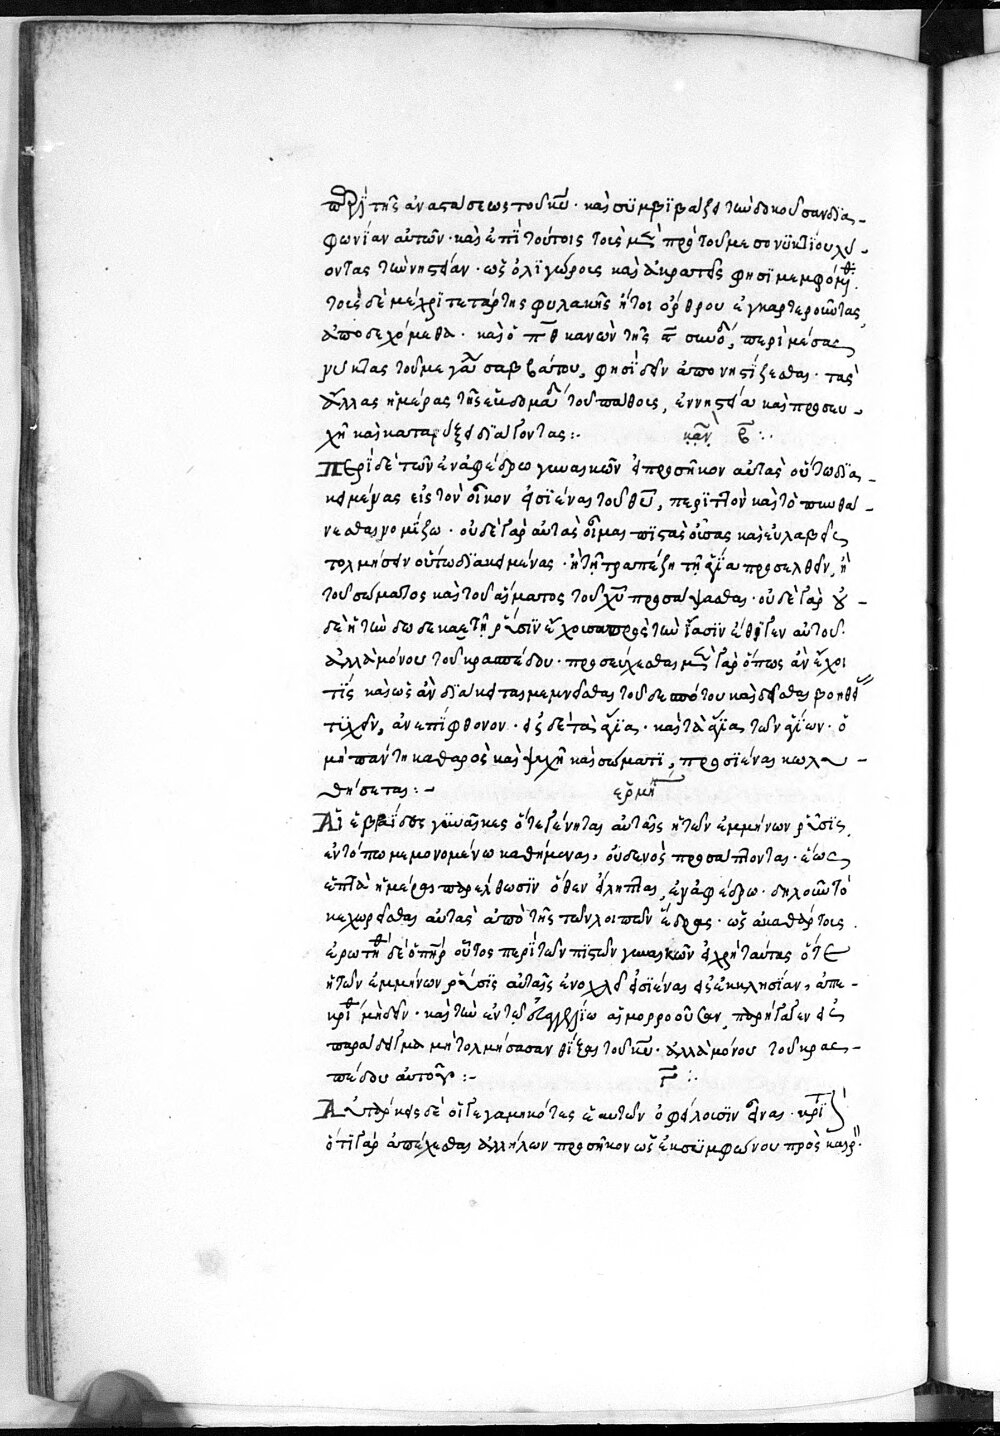 περὶ τῆς ἀναστάσεως τοῦ κυ̅· καὶ συμβιβάζει τὴν δοκοῦσαν δια-
φωνίαν αὐτῶν· καὶ ἐπὶ τούτοις τοὺς μὲν πρὸ τοῦ μεσονυκτίου λύ-
οντας τὴν νηστείαν· ὡς ὀλιγώρους καὶ ἀκρατεῖς φησὶ μεμφόμεθα·
τοὺς δὲ μέχρι τετάρτης φυλακῆς ἤτοι ὄρθρου ἐγκαρτεροῦντας
ἀποδεχόμεθα· καὶ ὁ πθ κανὼν τῆς ϛ συνόδ, περὶ μέσας
νύκτας τοῦ μεγάλου σαββάτου, φησὶ δεῖν ἀπονηστίζεσθαι· τὰς
ἄλλας ἡμέρας τῆς ἑβδομάδ τοῦ πάθους, ἐν νηστείᾳ καὶ προσευ-
χῇ καὶ κατανύξει διάγοντας:- κανὼν β:-
Περὶ δὲ τῶν ἐν ἀφέδρω γυναικῶν εἰ προσῆκον αὐτὰς οὕτω δια-
κειμένας εἰς τὸν οἶκον εἰσιέναι τοῦ θυ̅, περιττὸν καὶ τὸ πυνθά-
νεσθαι νομίζω· οὐδὲ γὰρ αὐτὰς οἶμαι πιστὰς οὔσας καὶ εὐλαβεῖς
τολμήσειν οὕτω διακειμένας· ἢ τῇ τραπέζῃ τῇ ἁγία προσελθεῖν, ἢ
τοῦ σώματος καὶ τοῦ αἵματος τοῦ χυ̅ προσάψασθαι· οὐδὲ γὰρ οὐ-
δὲ ἡ τὴν δωδεκαετῆ ῥύσιν ἔχουσα πρὸς τὴν ἴασιν ἔθιγεν αὐτοῦ·
ἀλλὰ μόνου τοῦ κρασπέδου· προσεύχεσθαι μὲν γὰρ ὅπως ἂν ἔχοι
τίς καὶ ὡς ἂν διάκειται μεμνεῖσθαι τοῦ δεσπότου καὶ δεῖσθαι βοηθείας
τυχεῖν, ἀνεπίφθονον· εἰς δὲ τὰ ἅγια· καὶ τὰ ἅγια τῶν ἁγίων· ὁ
μὴ πάντη καθαρὸς καὶ ψυχῇ καὶ σώματι, προσιέναι κωλυ-
θήσεται:- ἑρμη
Αἱ ἑβραΐδες γυναῖκες ὅτε γένηται αὐταῖς ἡ τῶν ἐμμήνων ῥύσις,
ἐν τόπω μεμονομένω καθήμεναι, οὐδενὸς προσάπτονται· ἕως
ἑπτὰ ἡμέραι παρέλθωσιν ὅθεν εἴληπται, ἐν ἀφέδρω· δηλοῦν τὸ
κεχωρεῖσθαι αὐτὰς ἀπὸ τῆς τῶν λοιπῶν ἕδρας· ὡς ἀκαθάρτους.
ἐρωτηθ δὲ ὁ πηρ οὗτος περὶ τῶν πιστῶν γυναικῶν εἰ χρὴ ταύτας ὅτε
ἡ τῶν ἐμμήνων ῥύσις αὐταῖς ἐνοχλεῖ εἰσιέναι εἰς ἐκκλησίαν, ἀπε-
κρίθ μὴ δεῖν· καὶ τὴν ἐν τῶ εὐαγγελίω αἱμορροοῦσαν, παρήγαγεν εἰς
παράδειγμα μὴ τολμήσασαν θίξαι τοῦ κυ̅· ἀλλὰ μόνου τοῦ κρας-
πέδου αὐτοῦ:- γ:-
Αὐτάρκεις δὲ οἱ γεγαμηκότες ἑαυτῶν ὀφείλουσιν εἶναι· κριτ
ὅτι γὰρ ἀπέχεσθαι ἀλλήλων προσῆκον ὡς ἐκ συμφώνου πρὸς καιρ·